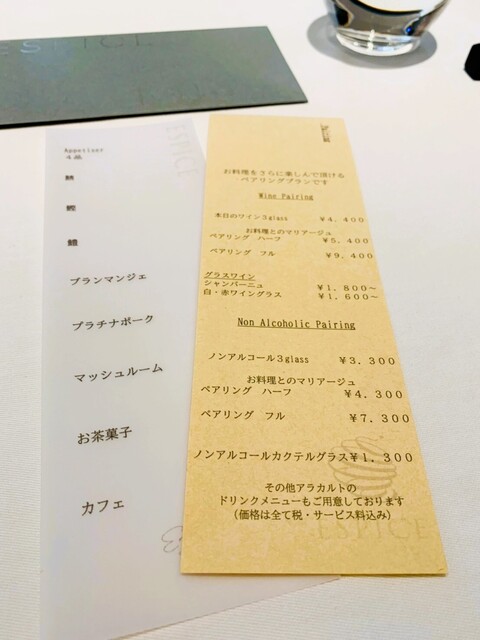 ESPICE
Appetizer
4品
鰹
ブランマンジェ
プラチナポーク
マッシュルーム
お茶菓子
カフェ
ESPICE
お料理をさらに楽しんで頂ける
ペアリングプランです
Wine Pairing
本日のワイン3glass ￥4,400
お料理とのマリアージュ
ペアリング ハーフ ￥5,400
ペアリング フル ￥9,400
グラスワイン
シャンパーニュ ￥1,800～
白・赤ワイングラス ￥1,600～
Non Alcoholic Pairing
ノンアルコール3glass ￥3,300
お料理とのマリアージュ
ペアリング ハーフ ￥4,300
ペアリング フル ￥7,300
ノンアルコールカクテルグラス￥1,300
その他アラカルトの
ドリンクメニューもご用意しております
（価格は全て税・サービス料込み）
ESPICE